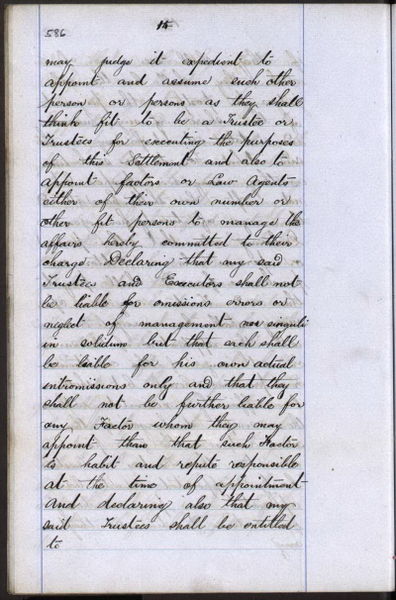 586
15
may judge it expedient to
appoint and assume such other
person or persons as they shall
think fit to be a Trustee or
Trustees for executing the purposes
of this Settlement and also to
appoint factors or Law Agents
either of their own number or
other fit persons to manage the
affairs hereby committed to their
charge Declaring that my said
Trustees and Executors shall not
be liable for omissions errors or
neglect of management nor singuli
in solidum but that each shall
be liable for his own actual
intromissions only and that they
shall not be further liable for
any Factor whom they may
appoint than that such Factor
is habit and repute responsible
at the time of appointment
and declaring also that my
said Trustees shall be entitled
to